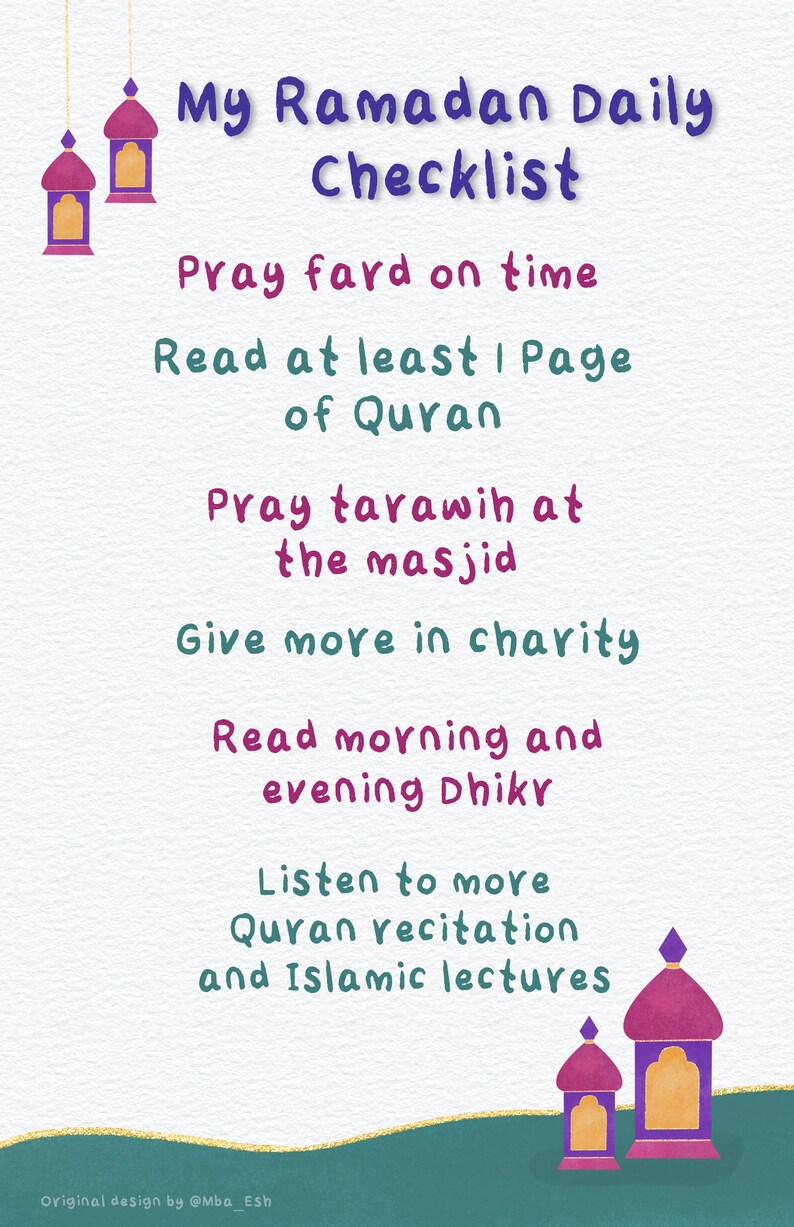 My Ramadan Daily
Checklist
Pray fard on time
Read at least 1 Page
of Quran
Pray tarawih at
the masjid
Give more in charity
Read morning and
evening Dhikr
Listen to more
Quran recitation
and Islamic lectures
Original design by @Mba_Esh